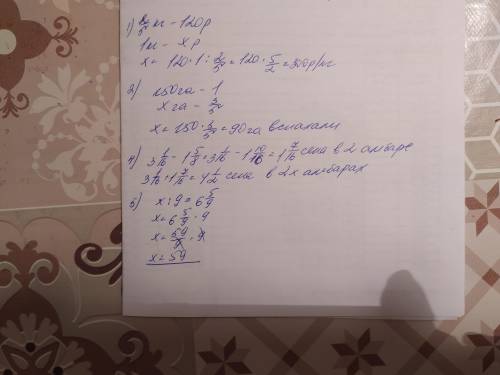 1) 2/5 кг – 120р
1 кг – x р
x = 120 · 1 : 2/5 = 120 · 5/2 = 300р/кг
2) 150га – 1
x га – 3/5
x = 150 · 3/5 = 90га вспахали
4) 3 1/16 – 1 5/8 = 3 1/16 – 1 10/16 = 1 7/16 сена в 2 амбаре
3 1/16 + 1 7/16 = 4 1/2 сена в 2х амбарах
5) x : 9 = 6 5/9
x = 6 5/9 · 9
x = 59/9 · 9
x = 59